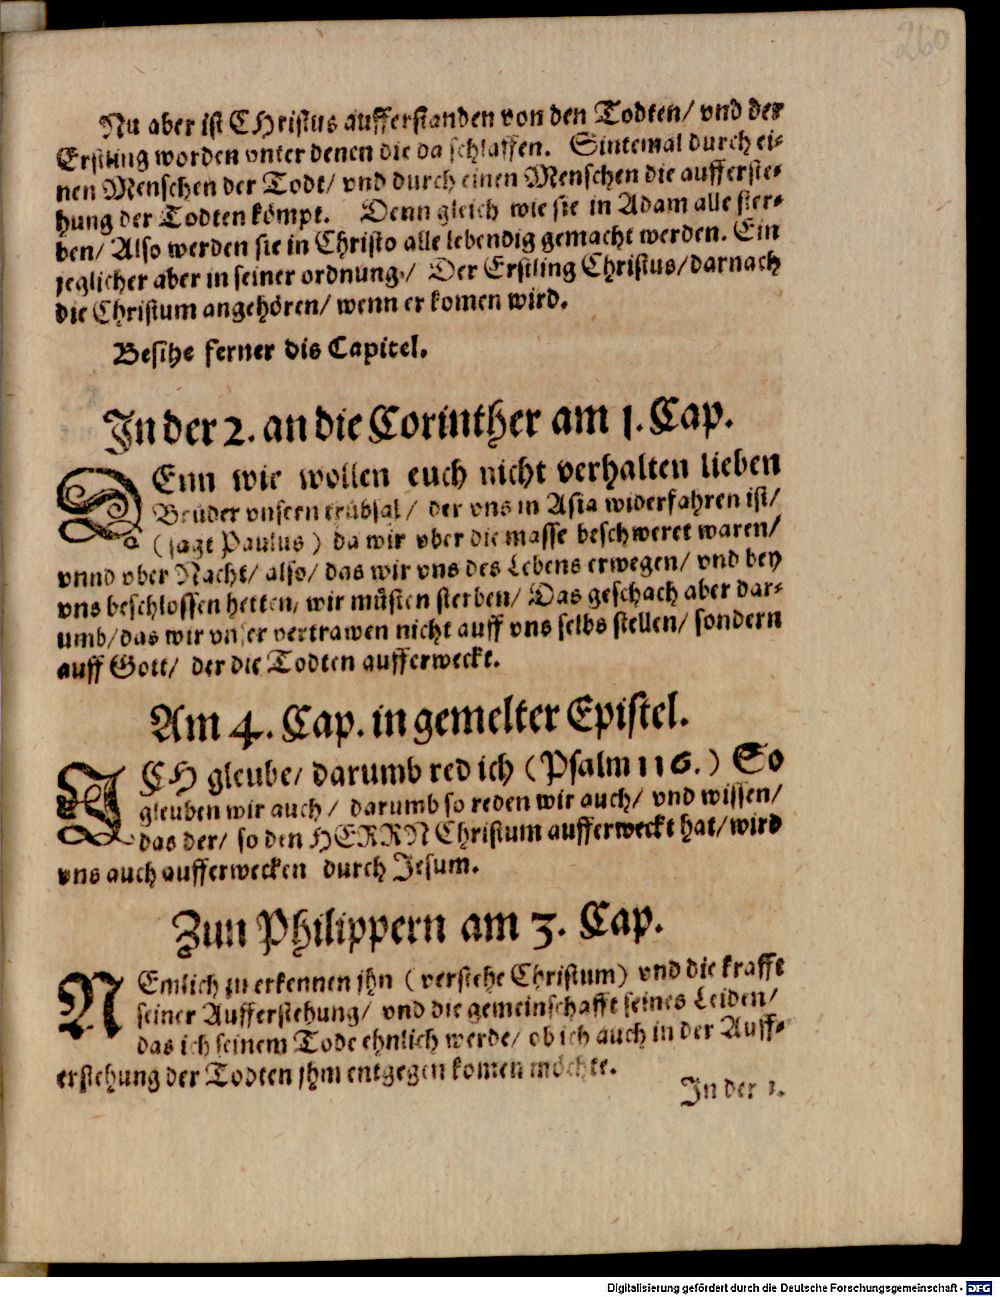 260
Nu aber ist CHristus aufferstanden von den Todten/ vnd der
Erstling worden vnter denen die da schlaffen. Sintemal durch ei-
nen Menschen der Todt/ vnd durch einen Menschen die aufferste-
hung der Todten kömpt. Denn gleich wie sie in Adam alle ster-
ben/ Also werden sie in Christo alle lebendig gemacht werden. Ein
jeglicher aber in seiner ordnung/ Der Erstling Christus/ darnach
die Christum angehören/ wenn er komen wird.
Besihe ferner dis Capitel.
In der 2. an die Corinther am 1. Cap.
DEnn wir wollen euch nicht verhalten lieben
Brüder vnsern trübsal/ der vns in Asia widerfahren ist/
(sagt Paulus) da wir vber die masse beschweret waren/
vnnd vber Macht/ also/ das wir vns des Lebens erwegen/ vnd bey
vns beschlossen hetten, wir müsten sterben/ Das geschach aber dar-
umb/ das wir vnser vertrawen nicht auff vns selbs stellen/ sondern
auff Gott/ der die Todten aufferweckt.
Am 4. Cap. in gemelter Epistel.
ICH gleube/ darumb red ich (Psalm 116.) So
gleuben wir auch/ darumb so reden wir auch/ vnd wissen/
das der/ so den HERRN Christum aufferweckt hat/ wird
vns auch aufferwecken durch Jesum.
Zun Philippern am 3. Cap.
NEmlich zu erkennen jhn (verstehe Christum) vnd die krafft
seiner Aufferstehung/ vnd die gemeinschafft seines Leiden/
das ich seinem Tode ehnlich werde/ ob ich auch in der Auff-
erstehung der Todten jhm entgegen komen möchte.
In der 1.
Digitalisierung gefördert durch die Deutsche Forschungsgemeinschaft - DFG